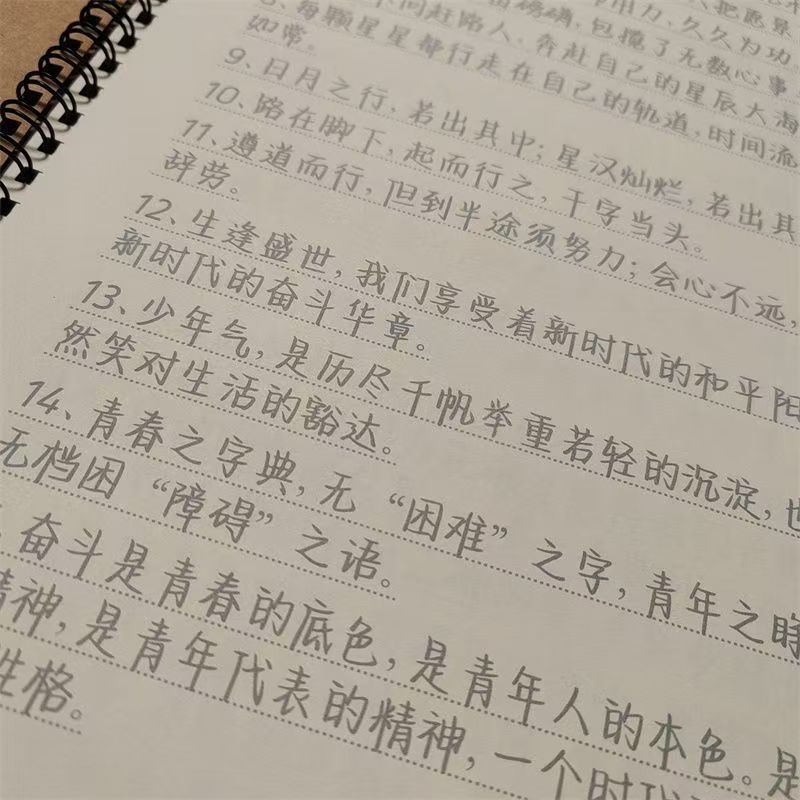 把愿景
磅礴，包揽了无数心事
间赶路人，奔赴自己的星辰大海
用力、久久为功。
8、每颗星星都行走在自己的轨道，时间流
如常。
9、日月之行，若出其中；星汉灿烂，若出其
10、路在脚下，起而行之，干字当头。
11、遵道而行，但到半途须努力；会心不远，
辞劳。
12、生逢盛世，我们享受着新时代的和平阳
新时代的奋斗华章。
13、少年气，是历尽千帆举重若轻的沉淀，也
然笑对生活的豁达。
14、青春之字典，无“困难”之字，青年之
无档困“障碍”之语。
奋斗是青春的底色，是青年人的本色。是
精神，是青年代表的精神，一个时代
性格。